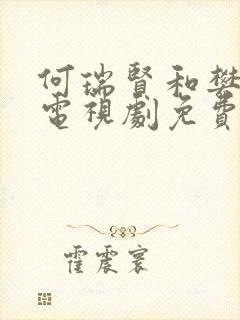 何瑞賢和樊
電視劇免費
霍震寰